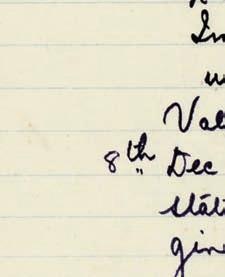 In
Val
8th Dec
stat
gin